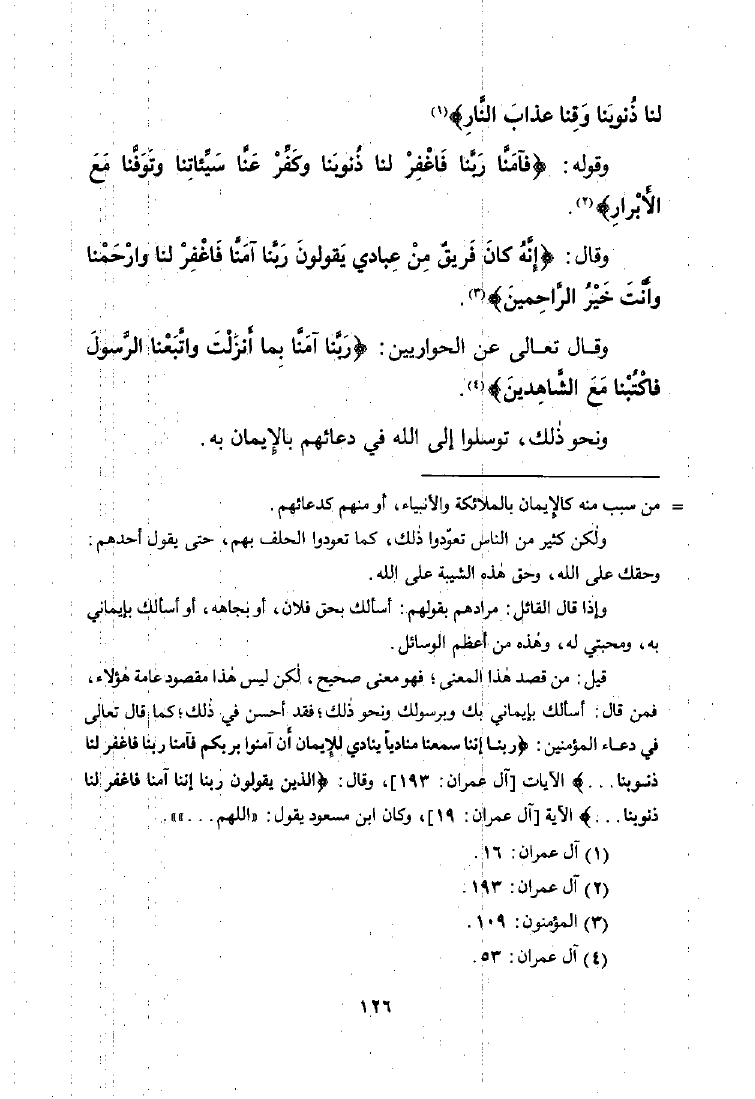 لنا ذُنوبَنا وَقِنا عذابَ النَّارِ﴾(١)
وقوله: ﴿فَآمَنَّا رَبَّنا فَاغْفِرْ لنا ذُنوبَنا وكَفِّرْ عَنَّا سَيِّئاتِنا وتَوَفَّنا مَعَ
الأَبْرارِ﴾(٢).
وقال: ﴿إِنَّهُ كانَ فَريقٌ مِنْ عِبادي يَقولونَ رَبَّنا آمَنَّا فَاغْفِرْ لنا وارْحَمْنا
وأَنْتَ خَيْرُ الرَّاحِمينَ﴾(٣).
وقال تعالى عن الحواريين: ﴿رَبَّنا آمَنَّا بِما أَنزَلْتَ واتَّبَعْنا الرَّسولَ
فاكْتُبْنا مَعَ الشَّاهِدينَ﴾(٤).
ونحو ذٰلك، توسلوا إلى الله في دعائهم بالإِيمان به.
= من سبب منه كالإِيمان بالملائكة والأنبياء، أو منهم كدعائهم.
ولٰكن كثير من الناس تعوّدوا ذٰلك، كما تعودوا الحلف بهم، حتى يقول أحدهم:
وحقك على الله، وحق هٰذه الشيبة على الله.
وإذا قال القائل: مرادهم بقولهم: أسألك بحق فلان، أو بجاهه، أو أسألك بإيماني
به، ومحبتي له، وهٰذه من أعظم الوسائل.
قيل: من قصد هٰذا المعنى؛ فهو معنى صحيح، لٰكن ليس هٰذا مقصود عامة هٰؤلاء،
فمن قال: أسألك بإيماني بك وبرسولك ونحو ذٰلك؛ فقد أحسن في ذٰلك؛ كما قال تعالى
في دعاء المؤمنين: ﴿ربنا إننا سمعنا منادياً ينادي للإِيمان أن آمنوا بربكم فآمنا ربنا فاغفر لنا
ذنوبنا...﴾ الآيات [آل عمران: ١٩٣]، وقال: ﴿الذين يقولون ربنا إننا آمنا فاغفر لنا
ذنوبنا...﴾ الآية [آل عمران: ١٩]، وكان ابن مسعود يقول: «اللهم...»».
(١) آل عمران: ١٦.
(٢) آل عمران: ١٩٣.
(٣) المؤمنون: ١٠٩.
(٤) آل عمران: ٥٣.
١٢٦